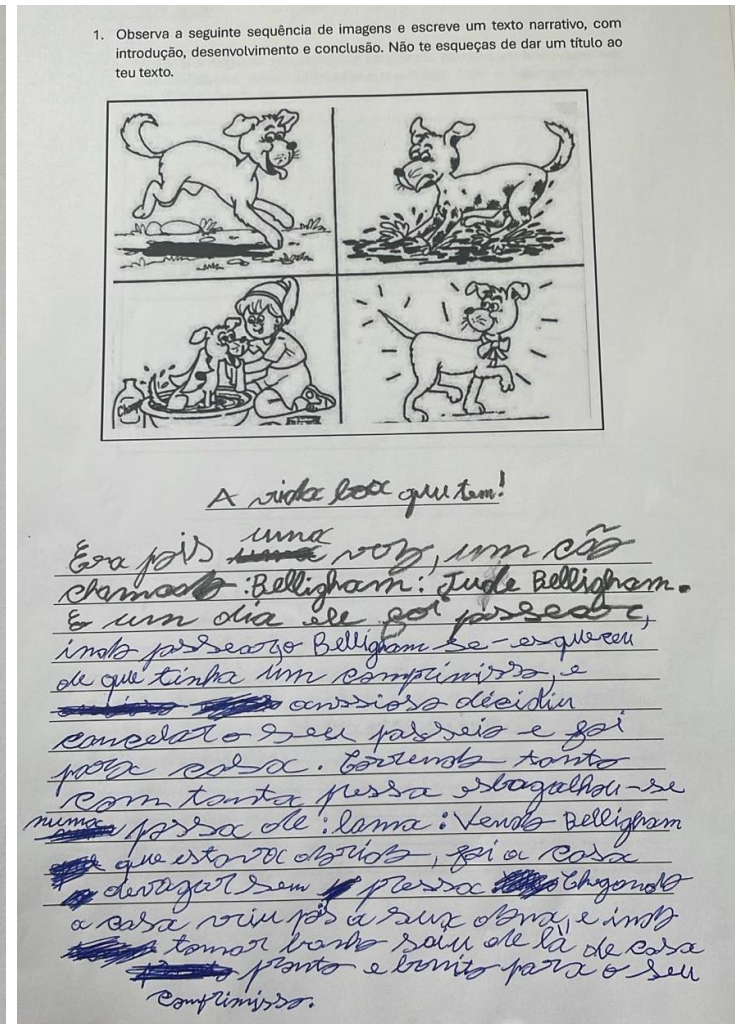 1. Observa a seguinte sequência de imagens e escreve um texto narrativo, com
introdução, desenvolvimento e conclusão. Não te esqueças de dar um título ao
teu texto.
A vida boa que tem!
Era pis uma voz, um cão
chamado :Belligham: Jude Belligham.
E um dia ele foi passear,
indo passear o Belligham se-esqueceu
de que tinha um comprimisso, e
anssioso décidiu
cancelar o seu passeio e foi
para casa. Correndo tanto
com tanta pressa esbagalhou-se
numa possa de :lama: Vendo Belligham
que estava obrido, foi a casa
devagar sem pressa Chegando
a casa viu pis a sua dona, e indo
tomar banho saiu de là de casa
pronto e bonito para o seu
comprimisso.